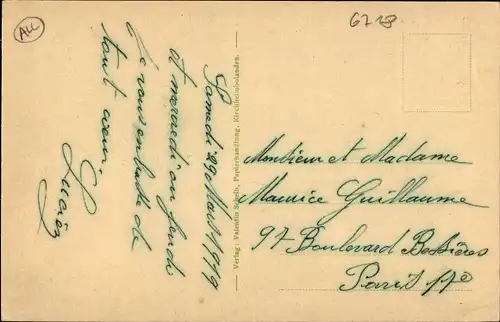 AU
6728
Samedi 29 Mars 1919
et mercredi ou jeudi
Je vous embrasse de
tout cœur.
Verlag: Valentin Scholb, Papierhandlung, Kirchheimbolanden.
Monsieur et Madame
Maurice Guillaume
97 Boulevard Bessières
Paris 17e